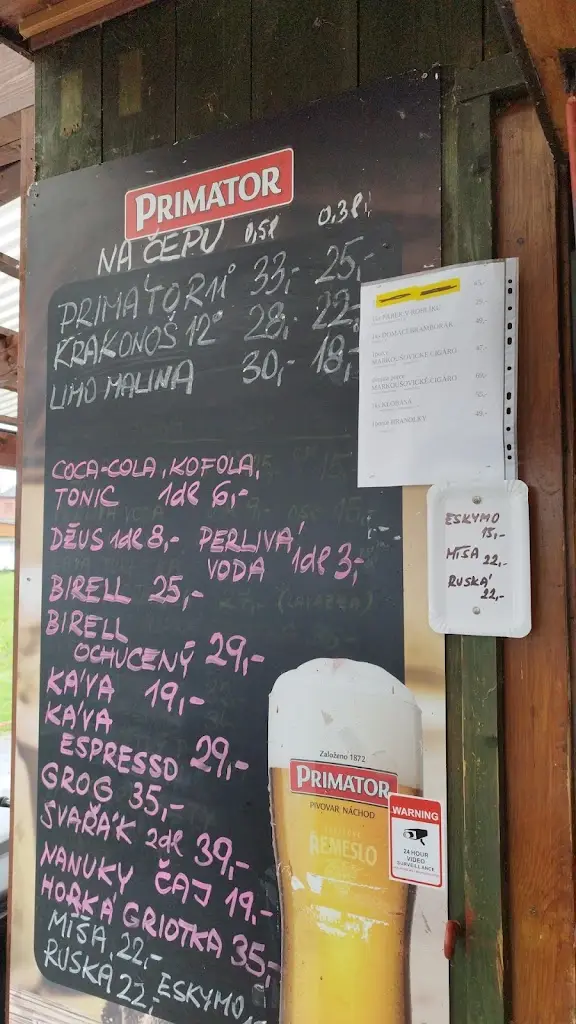 PRIMÁTOR
NA ČEPU 0,5l 0,3l
PRIMÁTOR 11° 33,- 25,-
KRAKONOŠ 12° 28,- 22,-
LIMO MALINA 30,- 18,-
COCA-COLA, KOFOLA,
TONIC 1dl 6,-
DŽUS 1dl 8,- PERLIVÁ
VODA 1dl 3,-
BIRELL 25,-
BIRELL
OCHUCENÝ 29,-
KÁVA 19,-
KÁVA
ESPRESSO 29,-
GROG 35,-
SVAŘÁK 2dl 39,-
NANUKY ČAJ 19,-
HORKÁ GRIOTKA 35,-
MÍŠA 22,-
RUSKÁ 22,- ESKYMO
PÁREK V ROHLÍKU
DOMÁCÍ BRAMBORÁK
MARKOUŠOVICKÉ CIGÁRO
MARKOUŠOVICKÉ CIGÁRO
KLOBÁSA
HRANOLKY
ESKYMO
15,-
MÍŠA 22,-
RUSKÁ
22,-
Založeno 1872
PRIMÁTOR
PIVOVAR NÁCHOD
ŘEMESLO
WARNING
24 HOUR
VIDEO
SURVEILLANCE